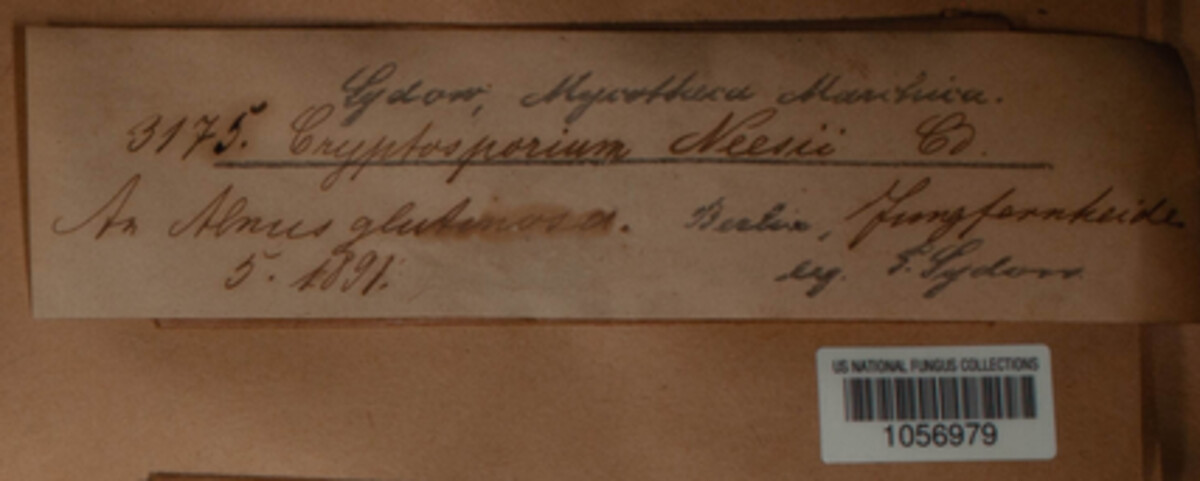 Sydow, Mycotheca Marchica.
3175. Cryptosporium Neesii Cd.
An Alnus glutinosa. Berlin, Jungfernheide
5. 1891. leg. P. Sydow
US NATIONAL FUNGUS COLLECTIONS
1056979